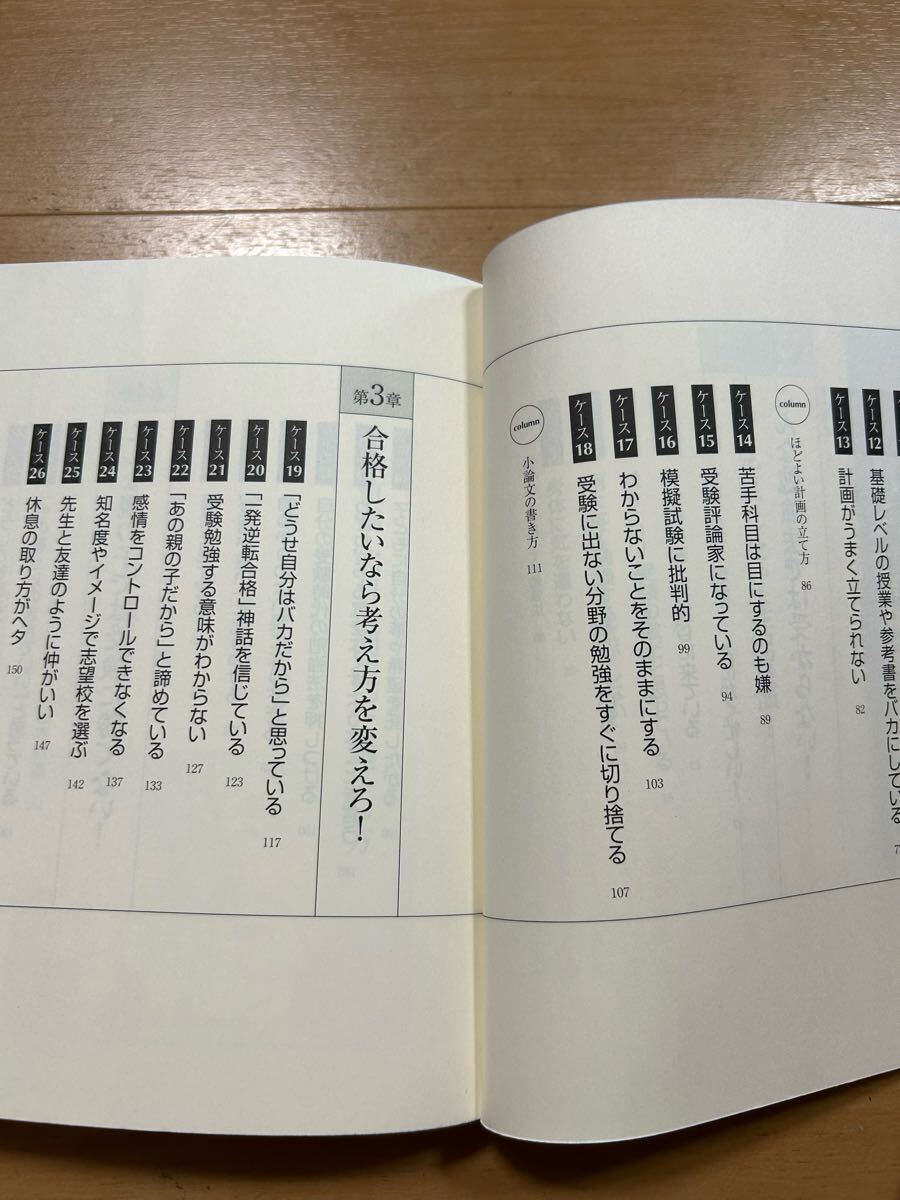 ケース12 基礎レベルの授業や参考書をバカにしている
ケース13 計画がうまく立てられない 82
column ほどよい計画の立て方 86
ケース14 苦手科目は目にするのも嫌 89
ケース15 受験評論家になっている 94
ケース16 模擬試験に批判的 99
ケース17 わからないことをそのままにする 103
ケース18 受験に出ない分野の勉強をすぐに切り捨てる 107
column 小論文の書き方 111
第3章 合格したいなら考え方を変えろ！
ケース19 「どうせ自分はバカだから」と思っている 117
ケース20 「一発逆転合格」神話を信じている 123
ケース21 受験勉強する意味がわからない 127
ケース22 「あの親の子だから」と諦めている 133
ケース23 感情をコントロールできなくなる 137
ケース24 知名度やイメージで志望校を選ぶ 142
ケース25 先生と友達のように仲がいい 147
ケース26 休息の取り方がヘタ 150